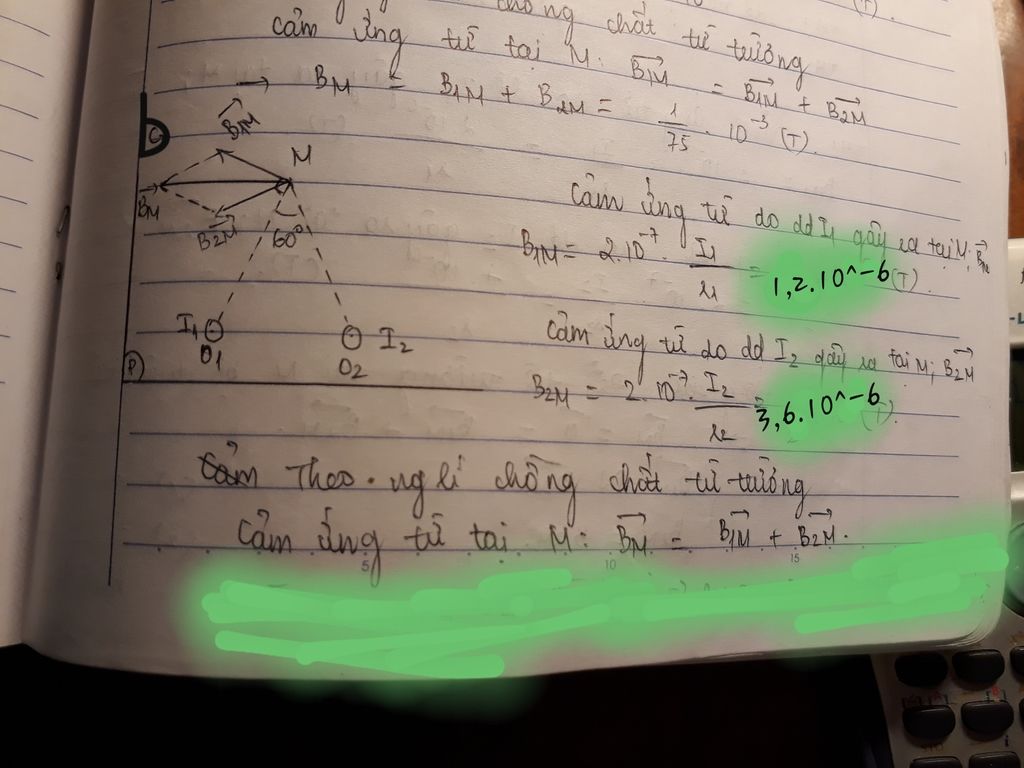 chồng chất từ trường (T).
cảm ứng từ tại M: B1M = B1M + B2M
→ BM = B1M + B2M = 1/75 . 10^-3 (T).
C
B1M
M
BM
B2M
60°
I1 O1
O2 I2
P)
Cảm ứng từ do dd I1 gây ra tại M; B1M
B1M = 2.10^-7 . I1/r1 = 1,2.10^-6 (T).
Cảm ứng từ do dd I2 gây ra tại M; B2M
B2M = 2.10^-7 . I2/r2 = 3,6.10^-6 (T).
Cảm Theo ng lí chồng chất từ trường
Cảm ứng từ tại M: BM = B1M + B2M.
5 10 15